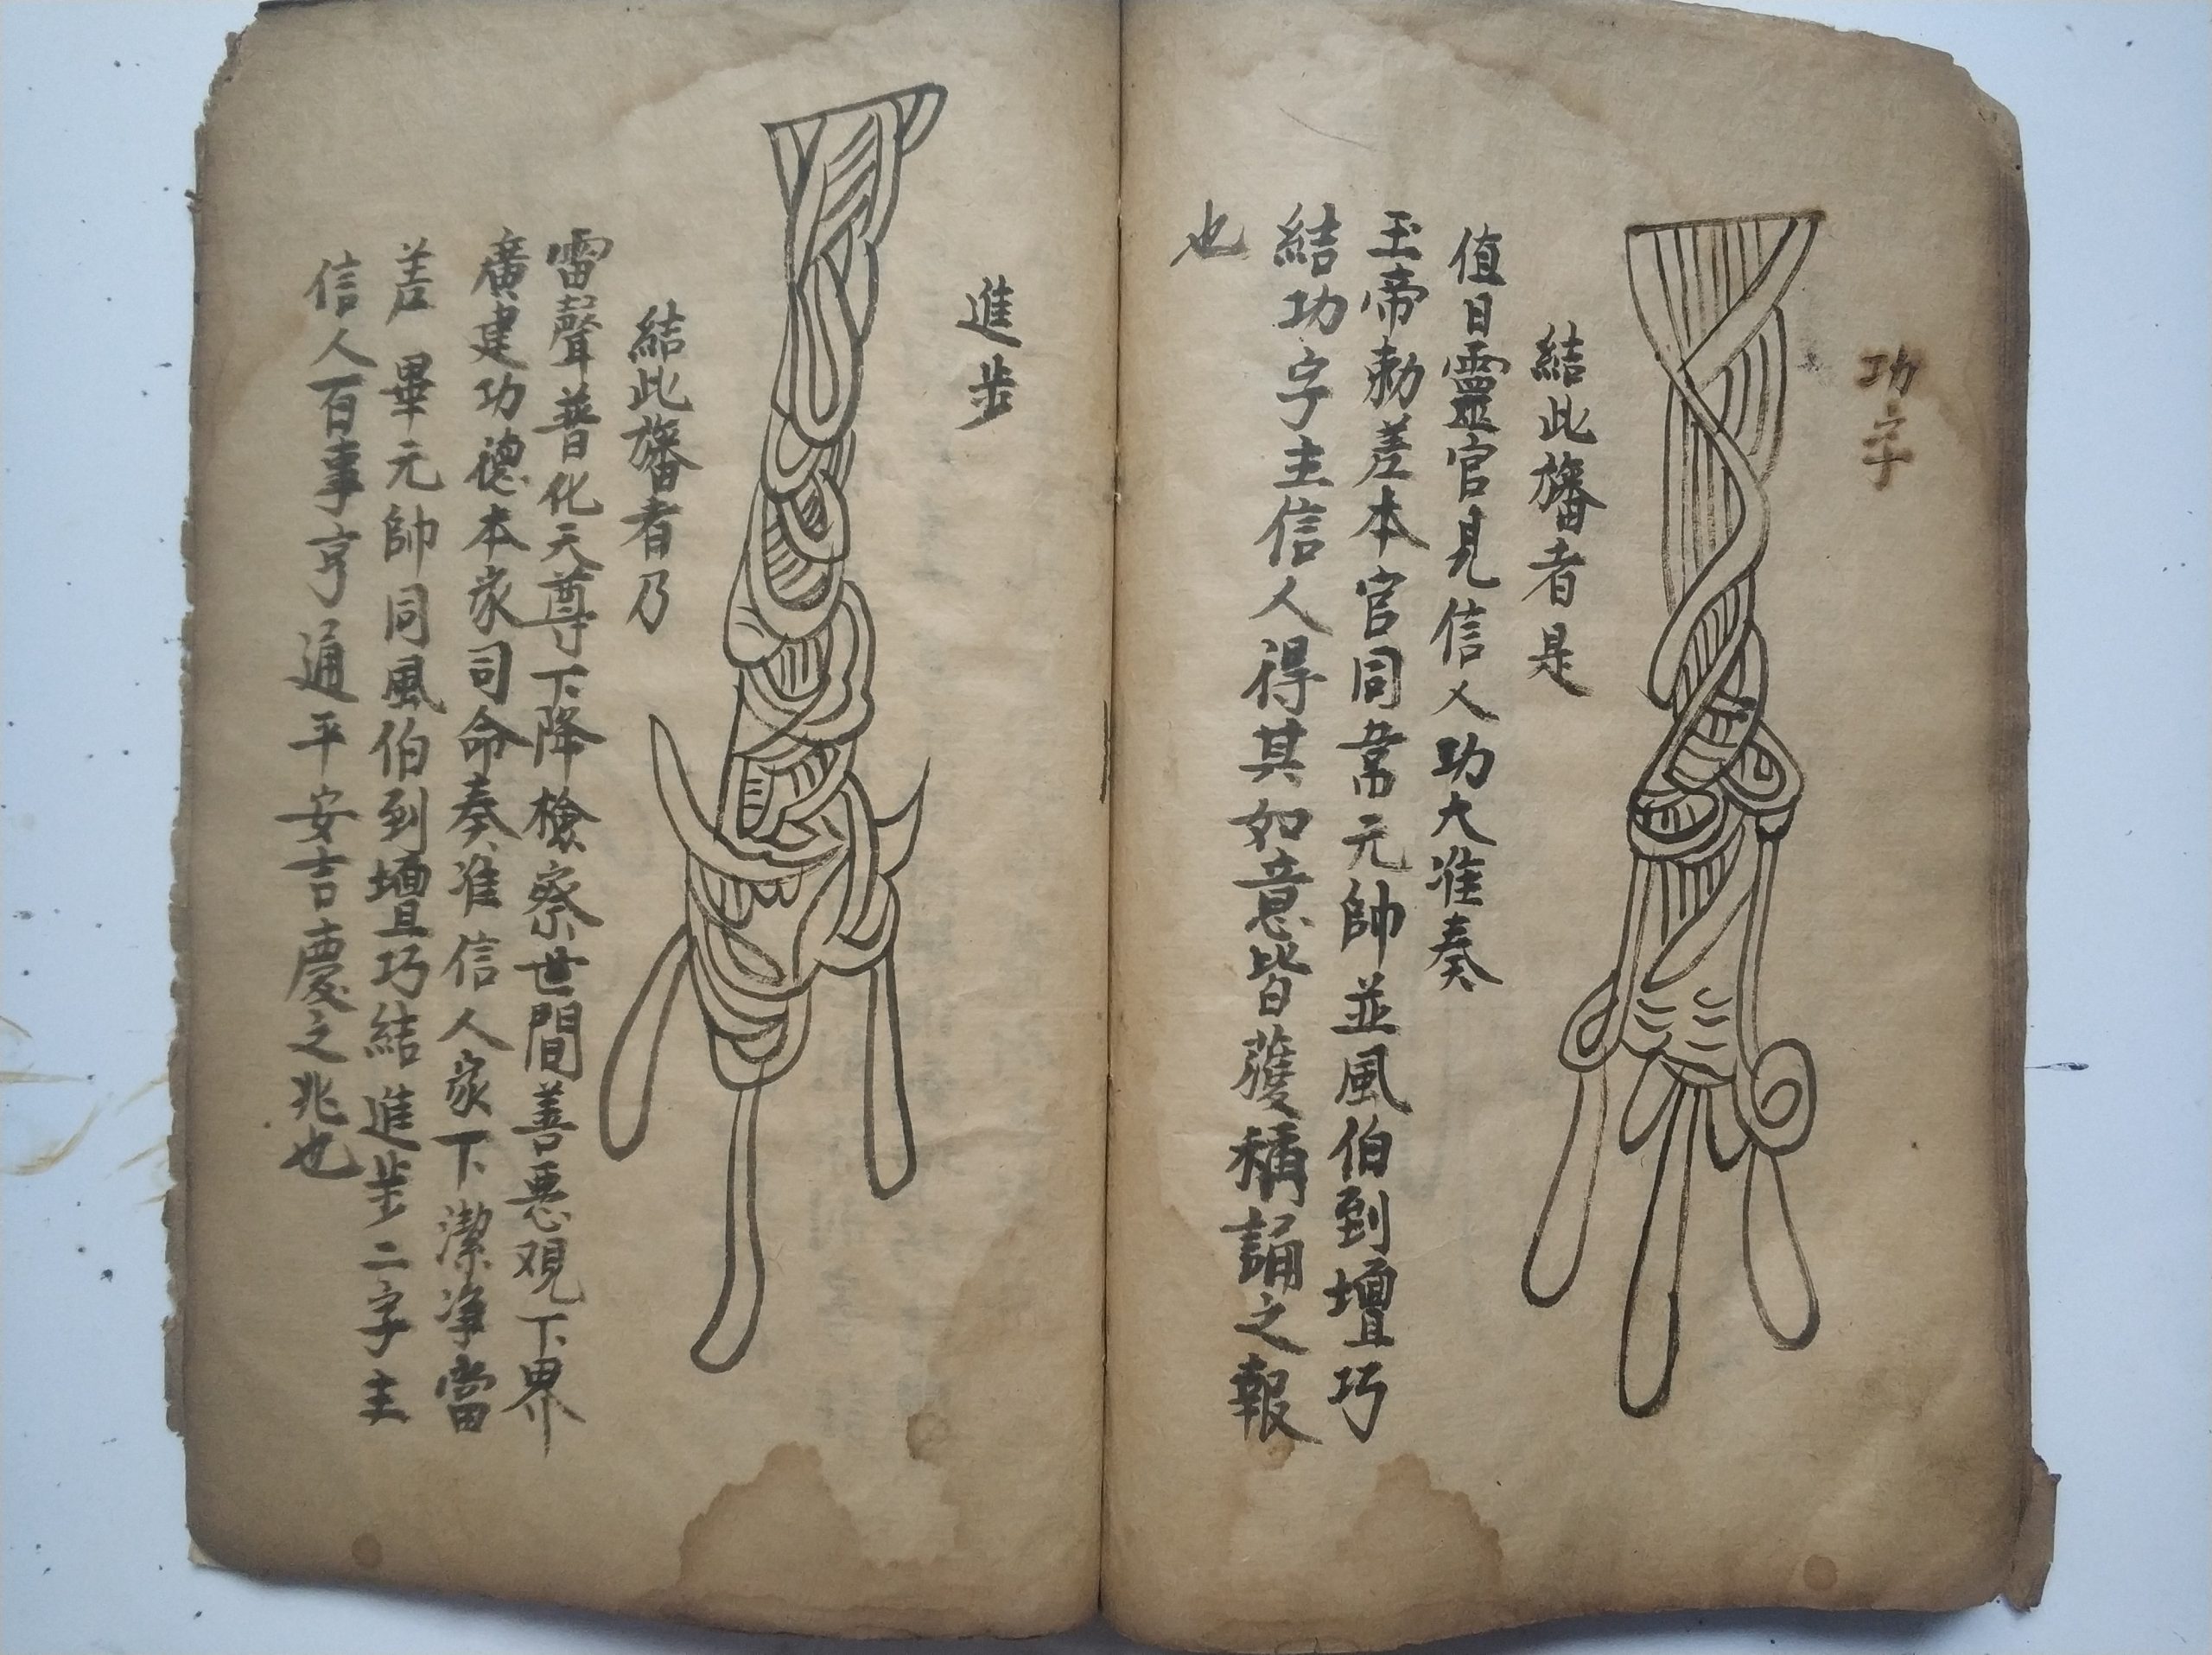 功字
結此旛者是
值日靈官見信人功大准奏
玉帝勅差本官同常元帥並風伯到壇巧
結功字主信人得其如意皆獲稱誦之報
也
進步
結此旛者乃
雷聲普化天尊下降檢察世間善惡观下界
廣建功德本家司命奏准信人家下潔净當
差 畢元帥同風伯到壇巧結進步二字主
信人百事亨通平安吉慶之兆也